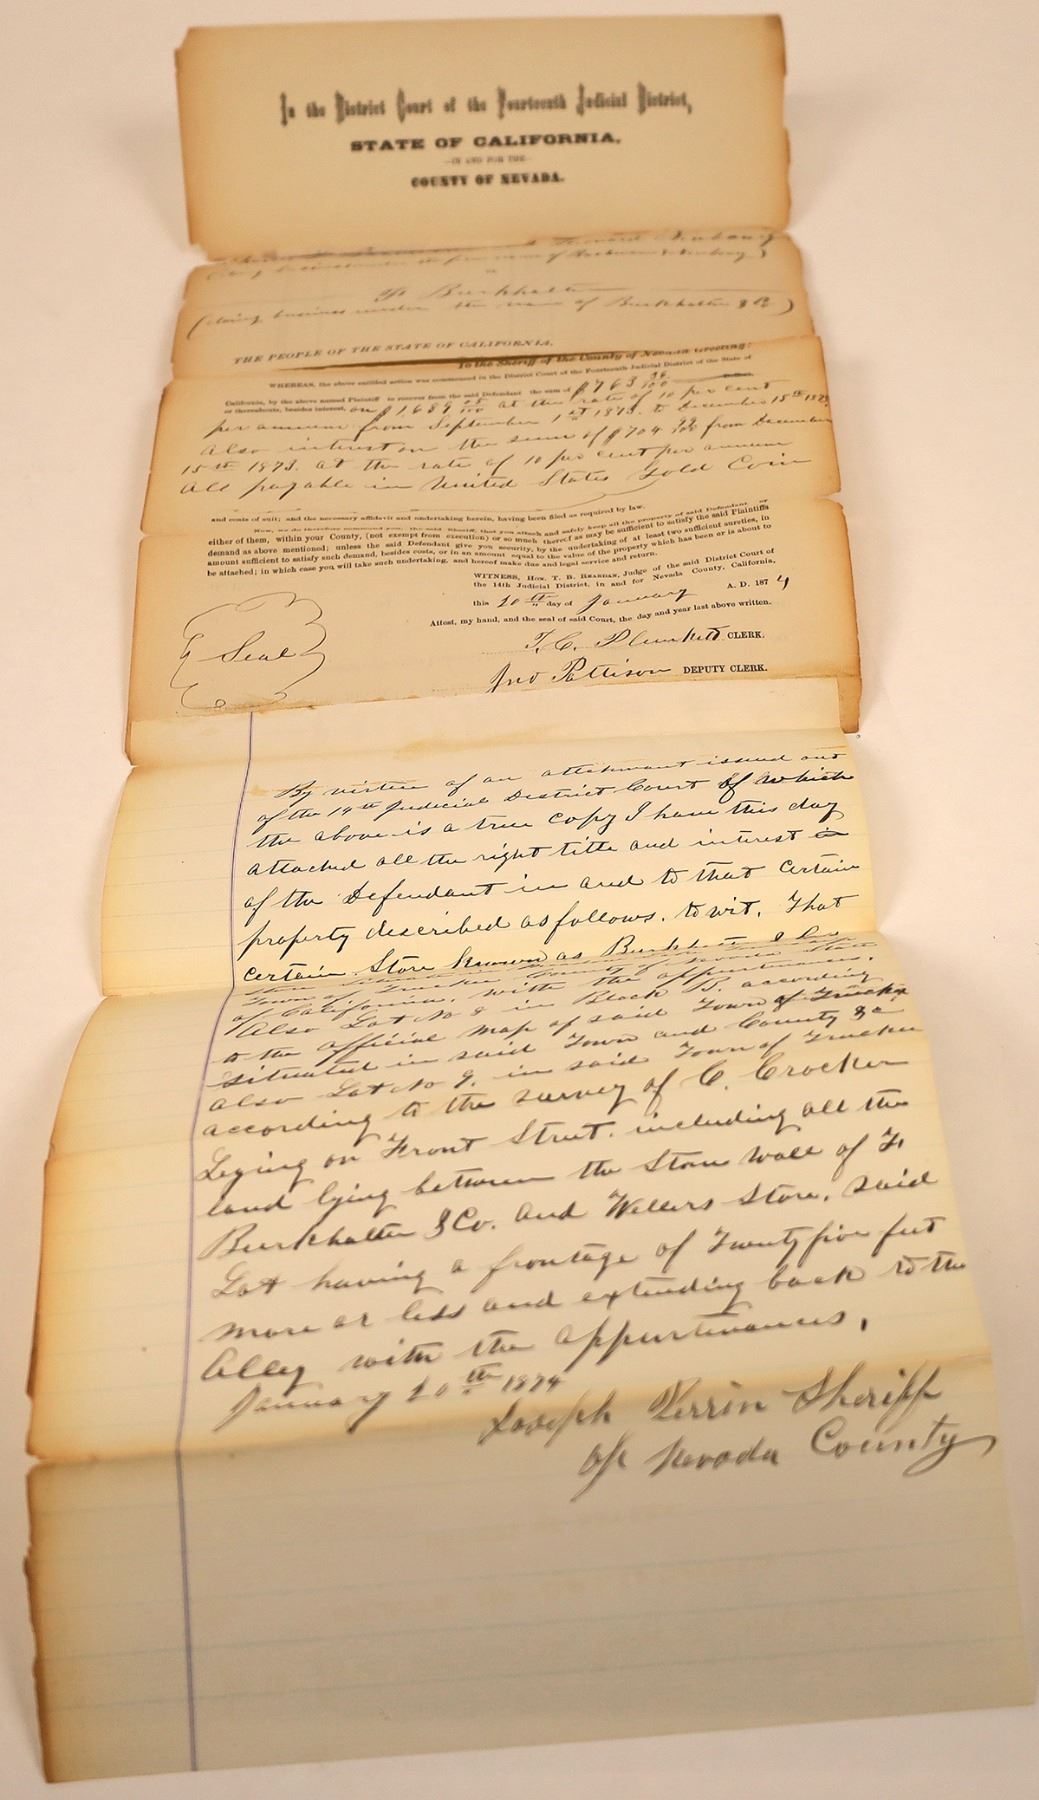 In the District Court of the Fourteenth Judicial District,
STATE OF CALIFORNIA,
—IN AND FOR THE—
COUNTY OF NEVADA.
Leonard Newbauer
(doing business under the firm name of
vs
F. Burkhalter
(doing business under the name of Burkhalter & Co)
THE PEOPLE OF THE STATE OF CALIFORNIA,
To the Sheriff of the County of Nevada Greeting:
WHEREAS, the above entitled action was commenced in the District Court of the Fourteenth Judicial District of the State of
California, by the above named Plaintiff to recover from the said Defendant the sum of $763 36/100 Dollars,
or thereabouts, besides interest, on $1,689 05/100 at the rate of 10 per cent
per annum from September 1st 1873. to December 15th 1873
Also interest on the sum of $704 from December
15th 1873. at the rate of 10 per cent per annum
All payable in United States Gold Coin
and costs of suit; and the necessary affidavit and undertaking herein, having been filed as required by law.
Now, we do therefore command you, the said Sheriff, that you attach and safely keep all the property of said Defendant or
either of them, within your County, (not exempt from execution) or so much thereof as may be sufficient to satisfy the said Plaintiffs
demand as above mentioned; unless the said Defendant give you security, by the undertaking of at least two sufficient sureties, in
amount sufficient to satisfy such demand, besides costs, or in an amount equal to the value of the property which has been or is about to
be attached; in which case you will take such undertaking, and hereof make due and legal service and return.
WITNESS, HON. T. B. REARDAN, Judge of the said District Court of
the 14th Judicial District, in and for Nevada County, California,
this 20th day of January A. D. 1874
Attest, my hand, and the seal of said Court, the day and year last above written.
Seal
T. C. Plunkett CLERK.
Jno Pattison DEPUTY CLERK.
By virtue of an attachment issued out
of the 14th Judicial District Court of which
the above is a true copy I have this day
attached all the right title and interest in
of the Defendant in and to that certain
property described as follows. to wit. That
certain Store known as Burkhalter & Co
Town of Truckee County of Nevada State
of California, with the appurtenances,
Also Lot No 8 in Block B. according
to the official map of said Town of Truckee
situated in said Town and County &c
also Lot No 9. in said Town of Truckee
according to the survey of C. Crocker
Lying on Front Street. including all the
land lying between the Stone wall of F
Burkhalter & Co. and Wellers Store, said
Lot having a frontage of Twenty five feet
more or less and extending back to the
Alley with the appurtenances,
January 20th 1874
Joseph Perrin Sheriff
of Nevada County